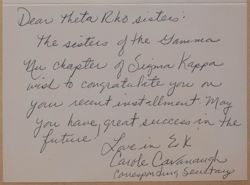 Dear Theta Rho sisters:
The sisters of the Gamma
Nu Chapter of Sigma Kappa
wish to congratulate you on
your recent installment. May
you have great success in the
future!
Love in ΣK
Carole Cavanaugh
Corresponding Secretary